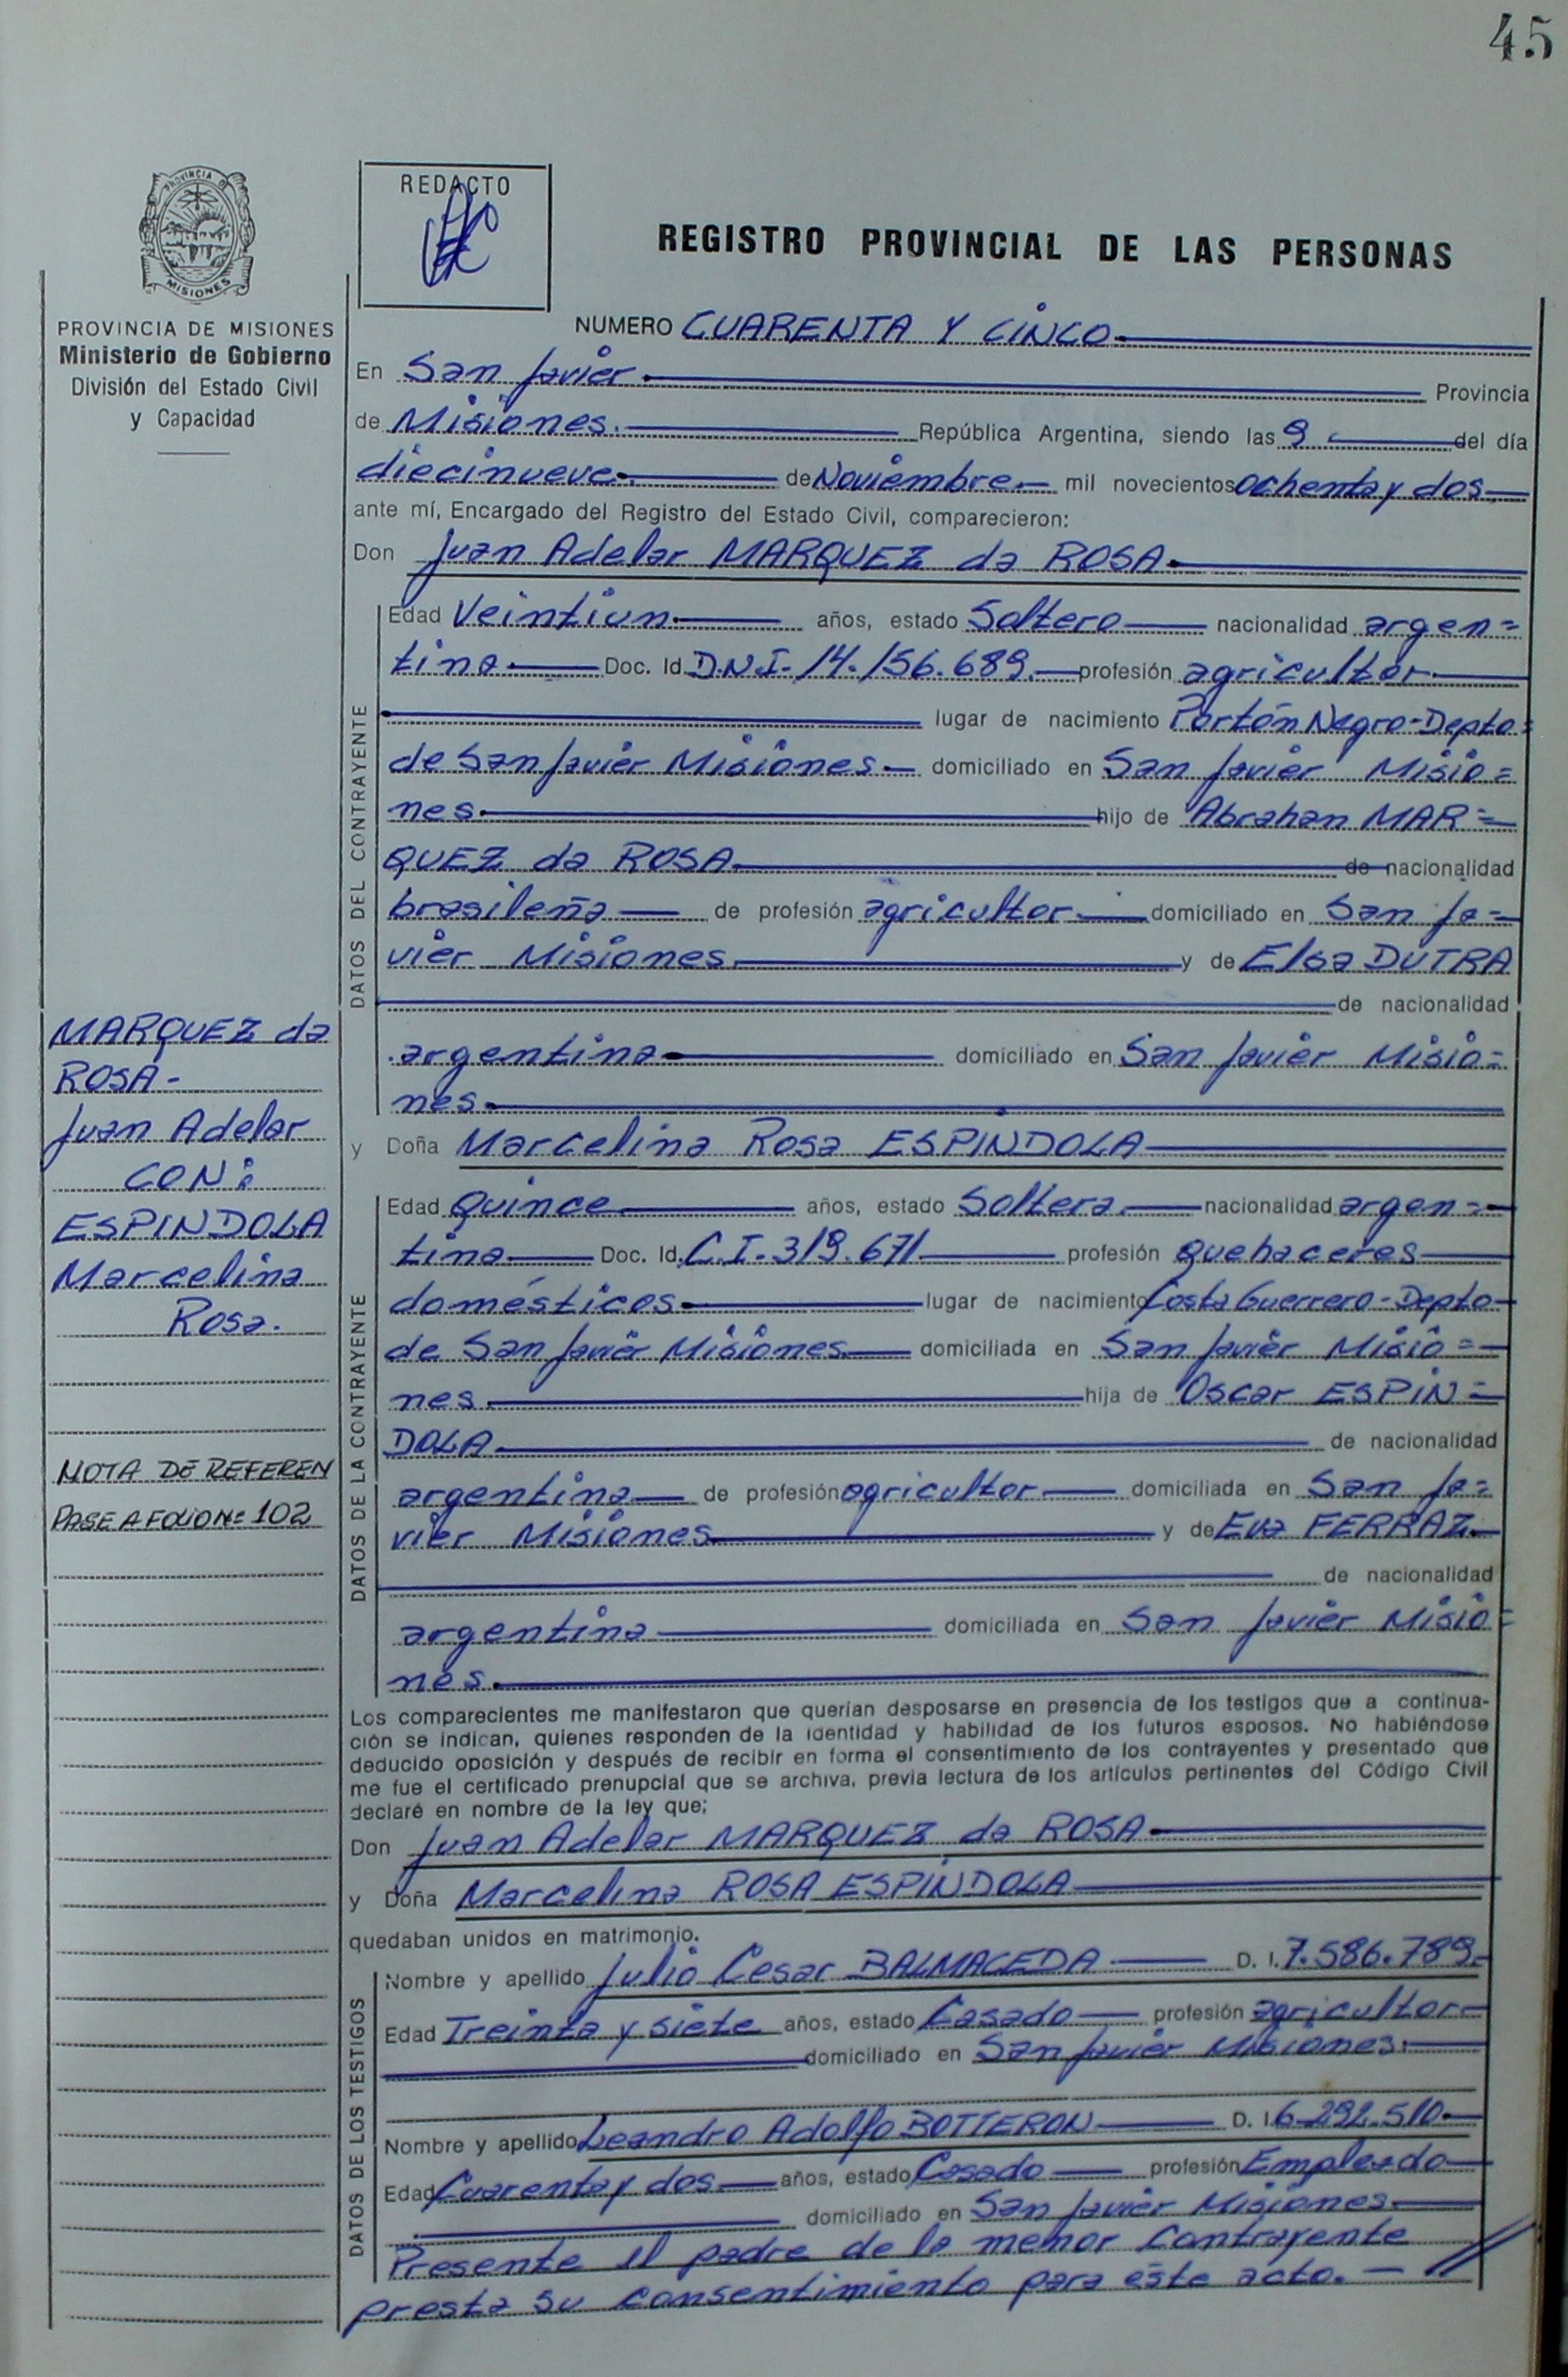 45
PROVINCIA D
MISIONES
REDACTO
REGISTRO PROVINCIAL DE LAS PERSONAS
PROVINCIA DE MISIONES
Ministerio de Gobierno
División del Estado Civil
y Capacidad
NUMERO CUARENTA Y CINCO
En San Javier Provincia
de Misiones. República Argentina, siendo las 9 del día
diecinueve de Noviembre mil novecientos ochenta y dos
ante mí, Encargado del Registro del Estado Civil, comparecieron:
Don Juan Adelar MARQUEZ da ROSA
DATOS DEL CONTRAYENTE
Edad Veintiun años, estado Soltero nacionalidad argen=
tina Doc. Id. D.N.I. 14.156.689. profesión agricultor
lugar de nacimiento Portón Negro-Depto=
de San Javier Misiones domiciliado en San Javier Misio=
nes hijo de Abrahan MAR=
QUEZ da ROSA de nacionalidad
brasileña de profesión agricultor domiciliado en San Ja=
vier Misiones y de Elsa DUTRA
de nacionalidad
argentina domiciliado en San Javier Misio=
nes.
MARQUEZ da
ROSA-
Juan Adelar
CON:
ESPINDOLA
Marcelina
Rosa.
NOTA DE REFEREN
PASE A FOLIO Nº 102
y Doña Marcelina Rosa ESPINDOLA
DATOS DE LA CONTRAYENTE
Edad Quince años, estado Soltera nacionalidad argen=
tina Doc. Id. C.I. 319.671 profesión quehaceres
domésticos lugar de nacimiento Costa Guerrero-Depto
de San Javier Misiones domiciliada en San Javier Misio=
nes. hija de Oscar ESPIN=
DOLA de nacionalidad
argentina de profesión agricultor domiciliada en San Ja=
vier Misiones y de Eva FERRAZ
de nacionalidad
argentina domiciliada en San Javier Misio=
nes.
Los comparecientes me manifestaron que querían desposarse en presencia de los testigos que a continua-
ción se indican, quienes responden de la identidad y habilidad de los futuros esposos. No habiéndose
deducido oposición y después de recibir en forma el consentimiento de los contrayentes y presentado que
me fue el certificado prenupcial que se archiva, previa lectura de los artículos pertinentes del Código Civil
declaré en nombre de la ley que;
Don Juan Adelar MARQUEZ da ROSA
y Doña Marcelina ROSA ESPINDOLA
quedaban unidos en matrimonio.
DATOS DE LOS TESTIGOS
Nombre y apellido Julio Cesar BALMACEDA D. I. 7.586.789.
Edad Treinta y siete años, estado Casado profesión agricultor
domiciliado en San Javier Misiones.
Nombre y apellido Leandro Adolfo BOTTERON D. I. 6.292.510
Edad Cuarenta y dos años, estado Casado profesión Empleado
domiciliado en San Javier Misiones.
Presente el padre de la menor contrayente
presta su consentimiento para éste acto. — //